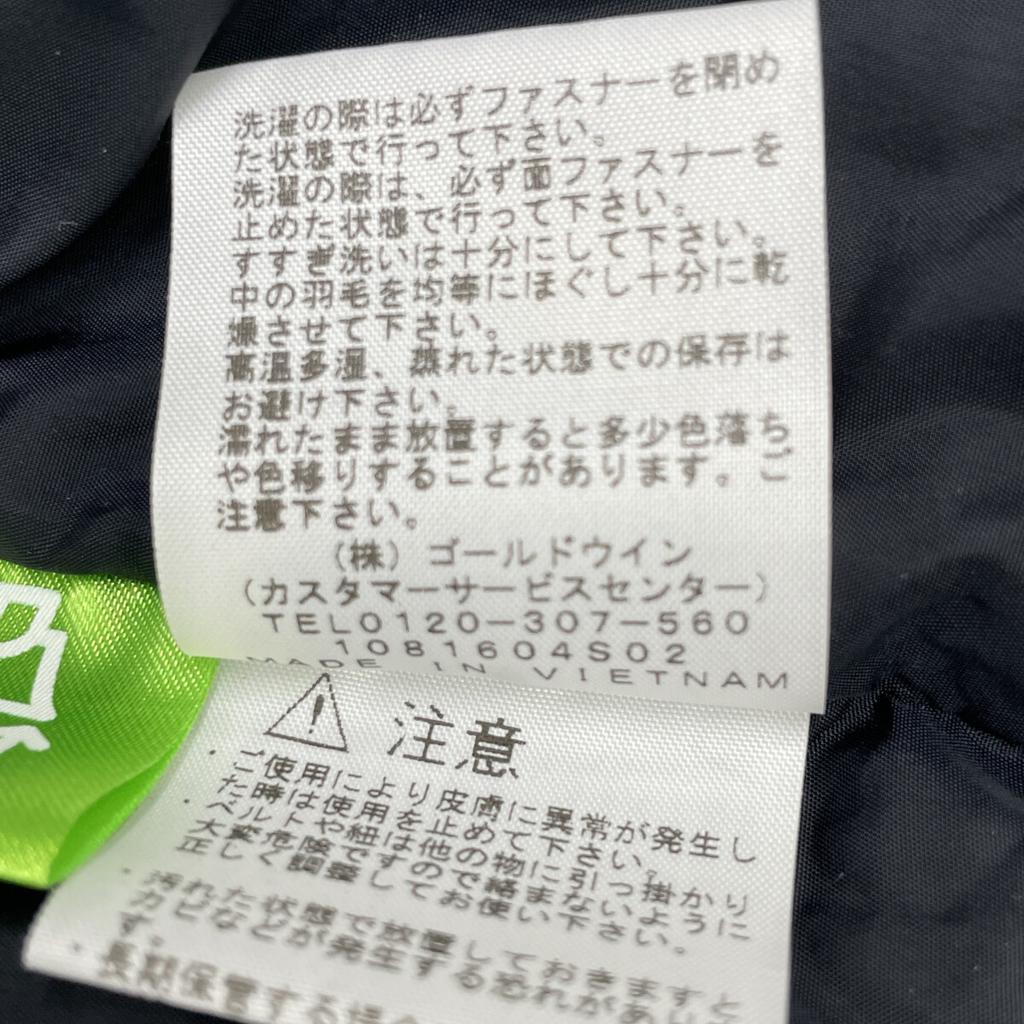 洗濯の際は必ずファスナーを閉め
た状態で行って下さい。
洗濯の際は、必ず面ファスナーを
止めた状態で行って下さい。
すすぎ洗いは十分にして下さい。
中の羽毛を均等にほぐし十分に乾
燥させて下さい。
高温多湿、蒸れた状態での保存は
お避け下さい。
濡れたまま放置すると多少色落ち
や色移りすることがあります。ご
注意下さい。
(株)ゴールドウイン
(カスタマーサービスセンター)
TEL0120-307-560
1081604S02
MADE IN VIETNAM
注意
・ご使用により皮膚に異常が発生し
た時は使用を止めて下さい。
・ベルトや紐は他の物に引っ掛かり
大変危険ですので絡まないように
正しく調整してお使い下さい。
・汚れた状態で放置しておきますと
カビなどが発生する恐れがあり
す。
・長期保管する場合